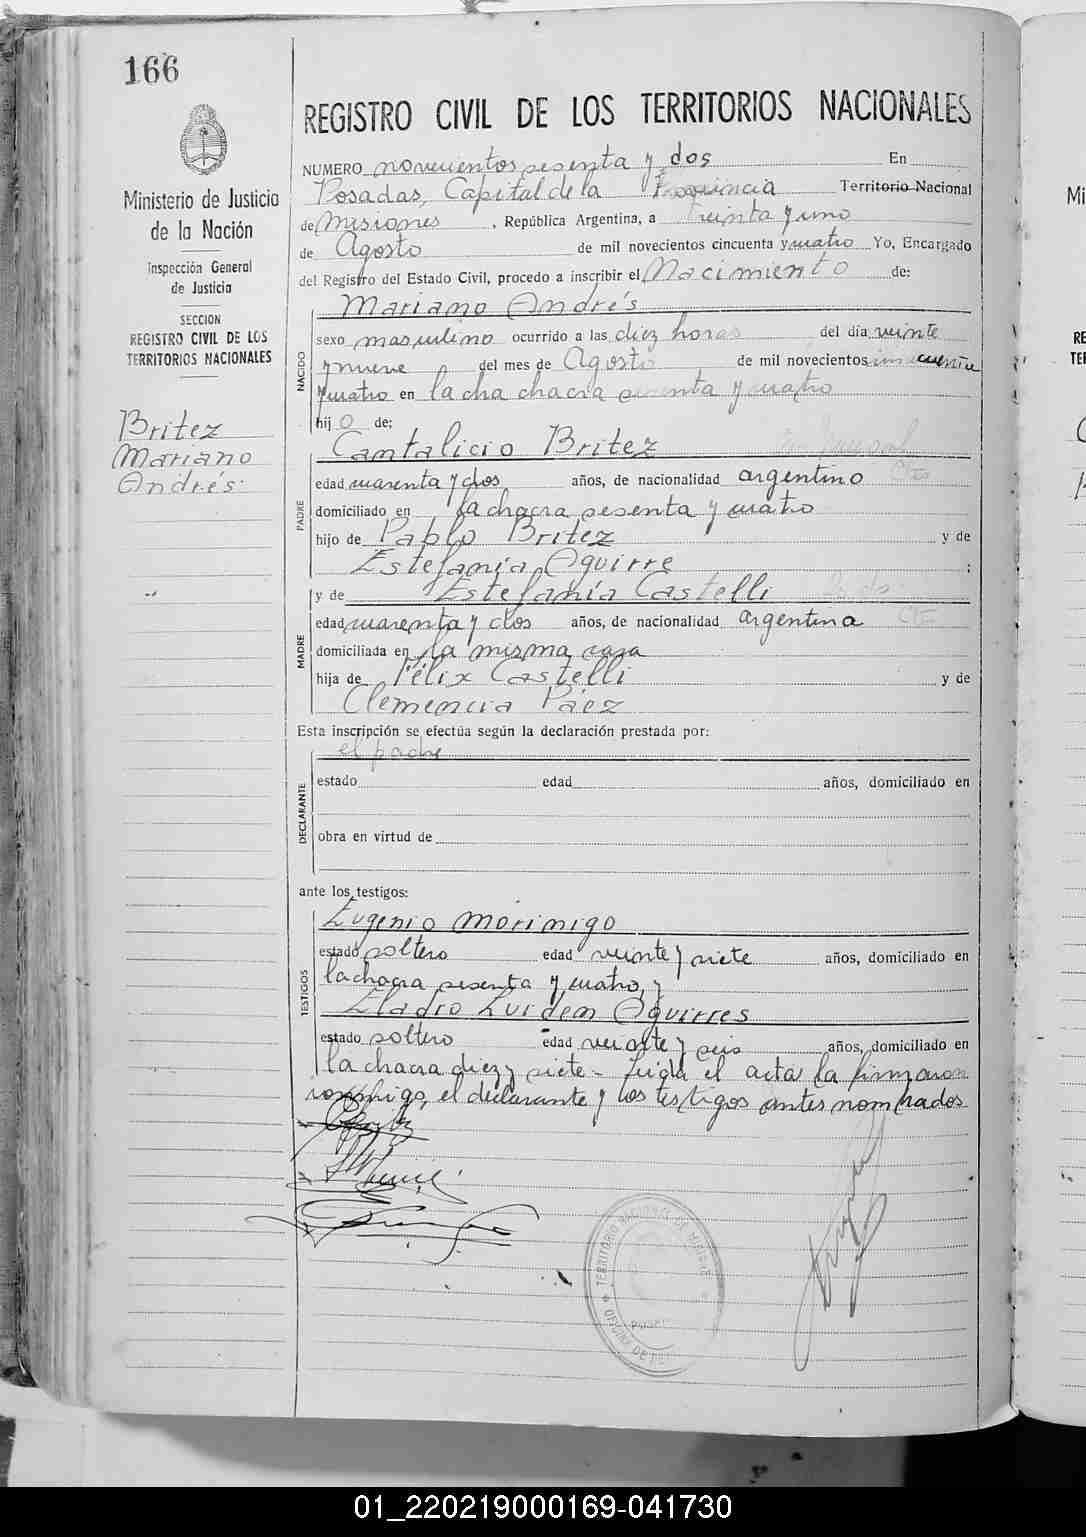 166
Ministerio de Justicia
de la Nación
Inspección General
de Justicia
SECCION
REGISTRO CIVIL DE LOS
TERRITORIOS NACIONALES
Britez
Mariano
Andrés
REGISTRO CIVIL DE LOS TERRITORIOS NACIONALES
NUMERO novecientos sesenta y dos En
Posadas, Capital de la Provincia Territorio Nacional
de Misiones, República Argentina, a treinta y uno
de Agosto de mil novecientos cincuenta y cuatro Yo, Encargado
del Registro del Estado Civil, procedo a inscribir el Nacimiento de:
Mariano Andrés
NACIDO
sexo masculino ocurrido a las diez horas del día veinte
y nueve del mes de Agosto de mil novecientos cincuenta
y cuatro en la cha chacra sesenta y cuatro
hijo de:
Cantalicio Britez
PADRE
edad cuarenta y dos años, de nacionalidad argentino
domiciliado en la chacra sesenta y cuatro
hijo de Pablo Britez y de
Estefanía Aguirre ;
y de Estefanía Castelli
MADRE
edad cuarenta y dos años, de nacionalidad argentina
domiciliada en la misma casa
hija de Félix Castelli y de
Clemencia Páez
Esta inscripción se efectúa según la declaración prestada por:
el padre
DECLARANTE
estado edad años, domiciliado en
obra en virtud de
ante los testigos:
Eugenio Morinigo
TESTIGOS
estado soltero edad veinte y siete años, domiciliado en
la chacra sesenta y cuatro, y
Eladio Aguirres
estado soltero edad veinte y seis años, domiciliado en
la chacra diez y siete - leída el acta la firmaron
conmigo, el declarante y los testigos antes nombrados
TERRITORIO NACIONAL DE
01_220219000169-041730